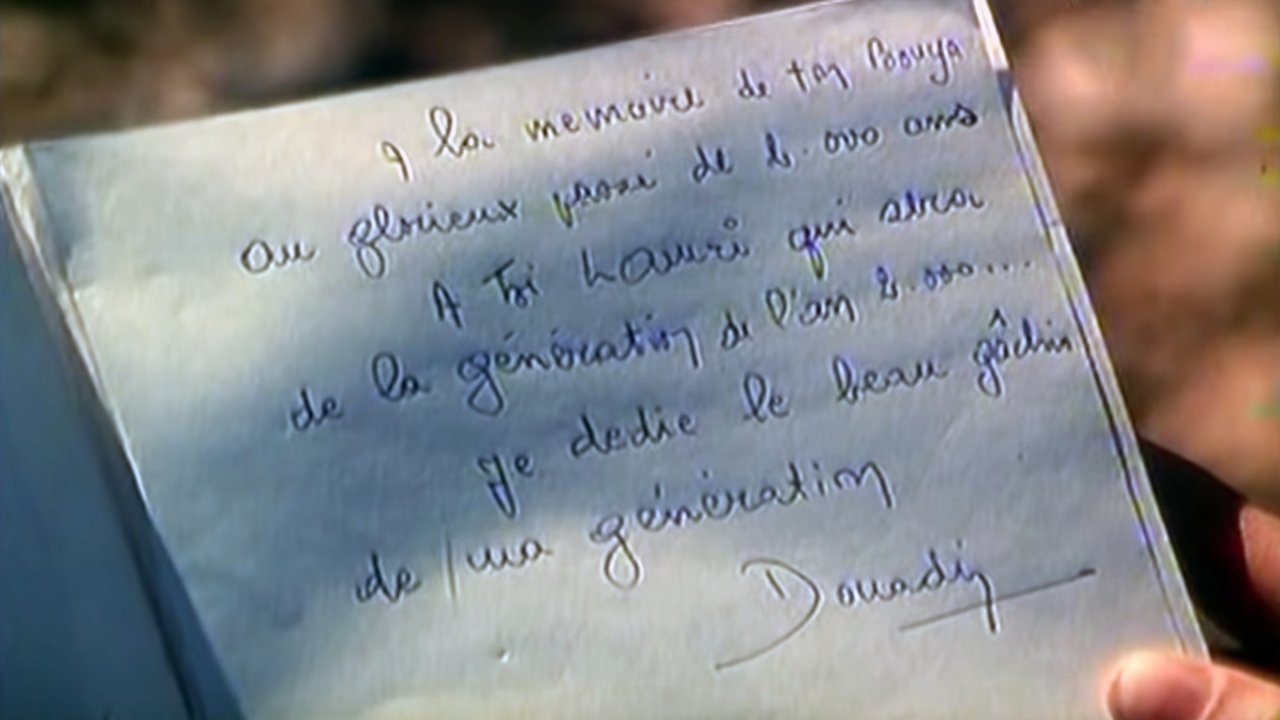 A la memoire de ton Bouya
au glorieux passé de 2.000 ans
A toi Lounri qui sera
de la génération de l'an 2.000...
je dedie le beau gâchis
de ma génération
Douadi